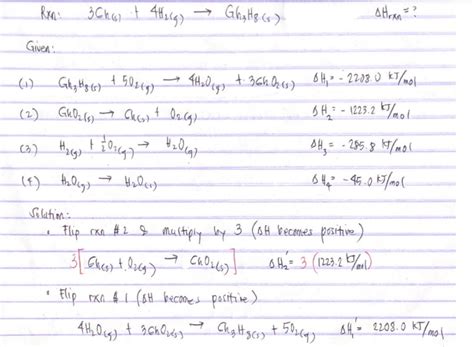 Rxn: 3Gh(s) + 4H₂(g) → Gh₃H₈(s) ΔHrxn = ?
Given:
(1) Gh₃H₈(s) + 5O₂(g) → 4H₂O(g) + 3GhO₂(s) ΔH₁ = - 2208.0 kJ/mol
(2) GhO₂(s) → Gh(s) + O₂(g) ΔH₂ = - 1223.2 kJ/mol
(3) H₂(g) + ½O₂(g) → H₂O(g) ΔH₃ = - 285.8 kJ/mol
(4) H₂O(g) → H₂O(s) ΔH₄ = - 45.0 kJ/mol
Solution:
• Flip rxn #2 & multiply by 3 (ΔH becomes positive)
3[Gh(s) + O₂(g) → GhO₂(s)] ΔH₂' = 3(1223.2 kJ/mol)
• Flip rxn #1 (ΔH becomes positive)
4H₂O(g) + 3GhO₂(s) → Gh₃H₈(s) + 5O₂(g) ΔH₁' = 2208.0 kJ/mol